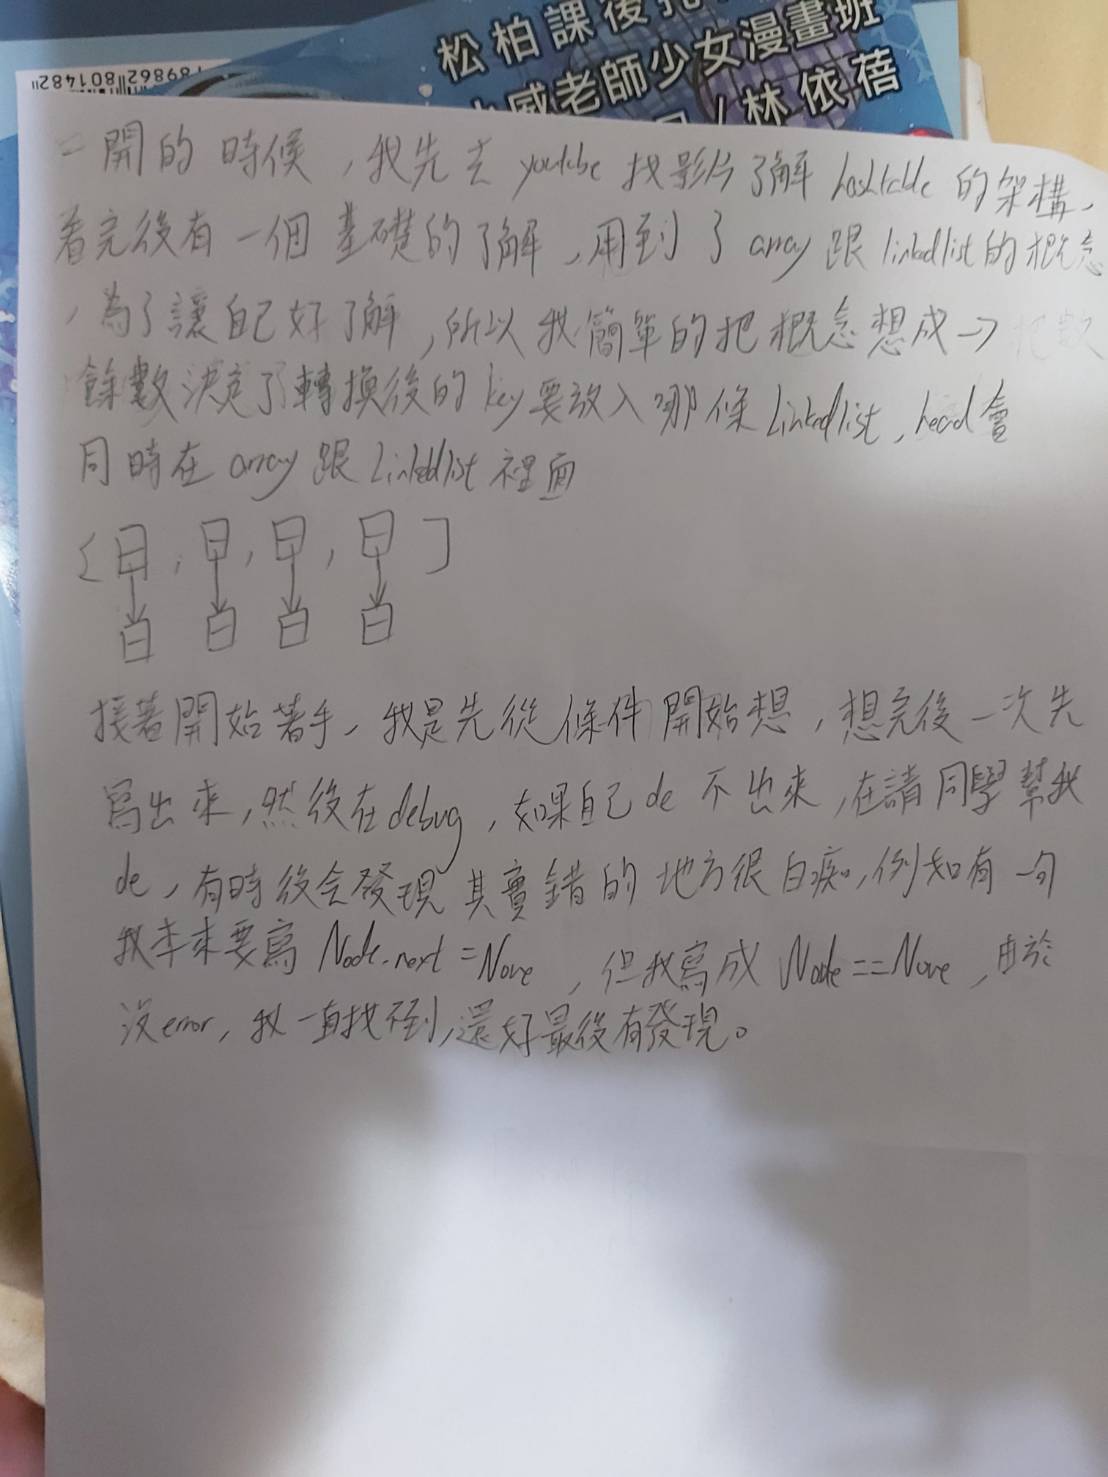 松柏課後托
威老師少女漫畫班
/林依蓓
一開的時候,我先去youtube找影片了解hashtable的架構,
看完後有一個基礎的了解,用到了array跟linkedlist的概念
,為了讓自己好了解,所以我簡單的把概念想成→把數
餘數決定了轉換後的key要放入哪條Linkedlist,head會
同時在array跟Linkedlist裡面
接著開始著手,我是先從條件開始想,想完後一次先
寫出來,然後在debug,如果自己de不出來,在請同學幫我
de,有時後会發現其實錯的地方很白痴,例如有一句
我本來要寫Node.next=None,但我寫成Node==None,由於
沒error,我一直找不到,還好最後有發現。